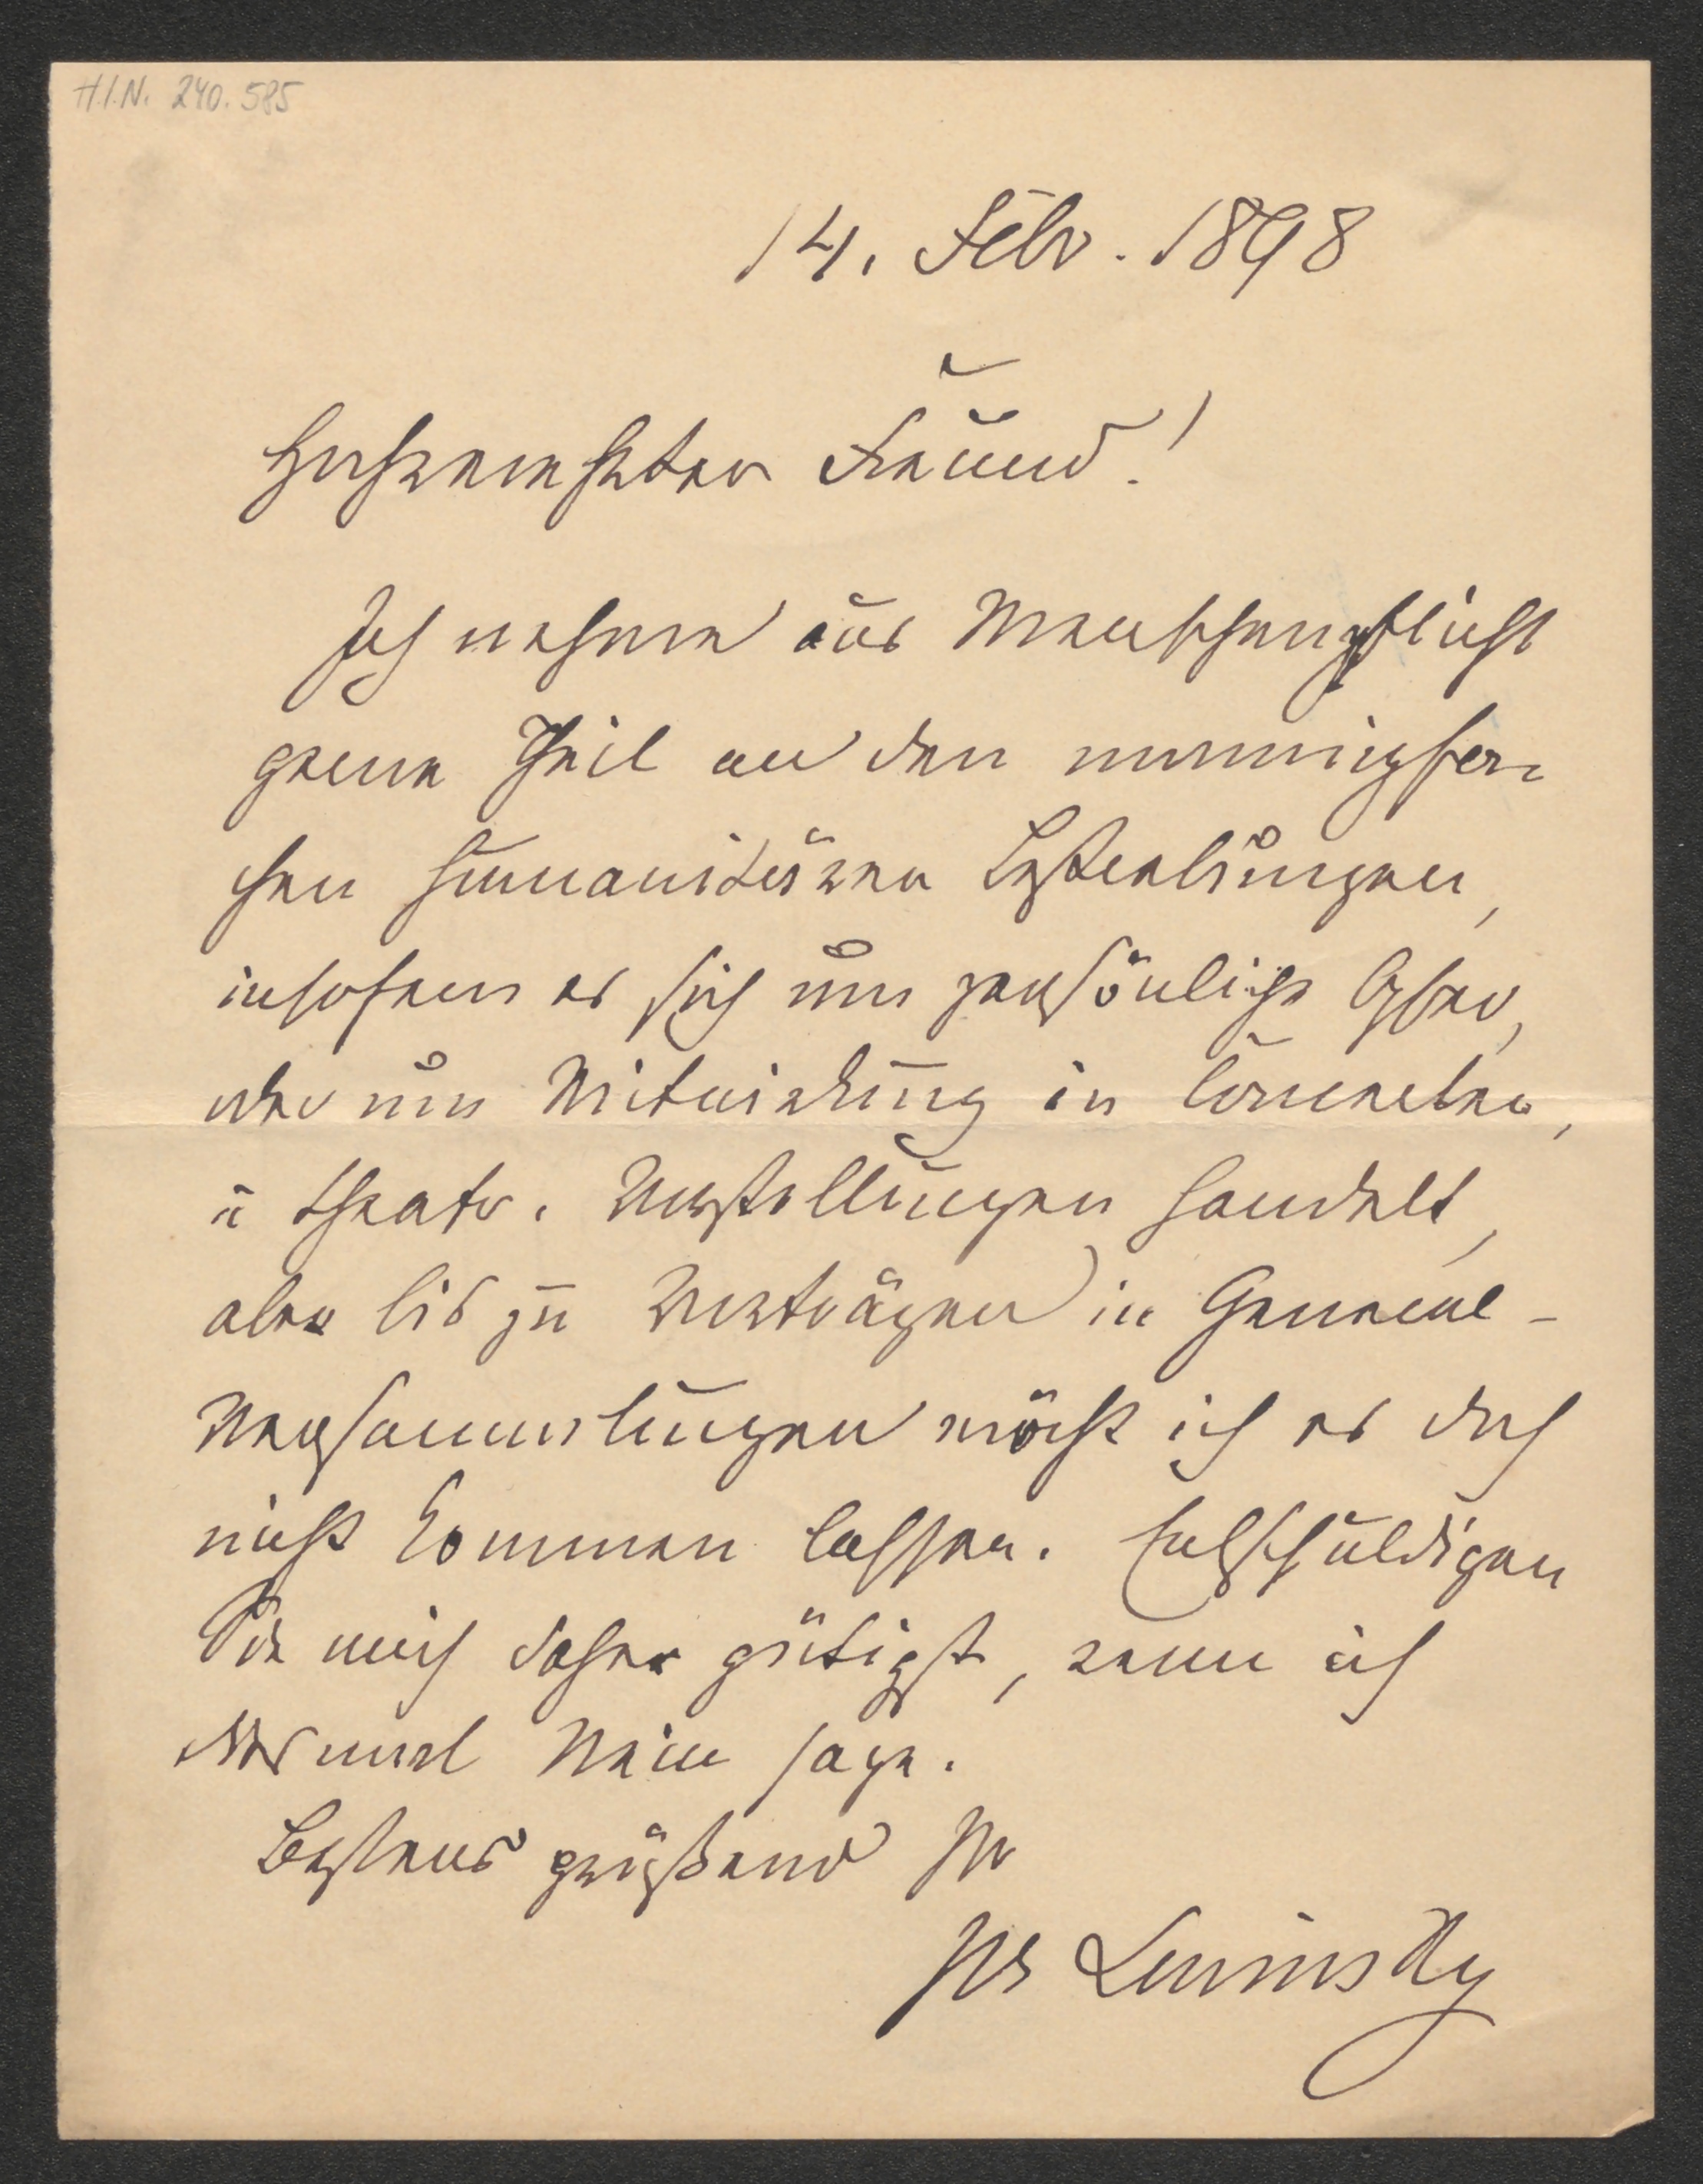 H.I.N. 240.585
14. Febr. 1898
Hochverehrter Freund!
Ich nehme aus Menschenpflicht
gerne Theil an den mannigfa-
chen humanitären Bestrebungen,
insofern es sich um persönliche Opfer,
oder um Mitwirkung in Concerten,
u theatr. Vorstellungen handelt,
aber bis zu Vorträgen in General-
Versammlungen möcht ich es doch
nicht kommen lassen. Entschuldigen
Sie mich daher gütigst, wenn ich
diesmal Nein sage.
Bestens grüßend Ihr
Jos Lewinsky